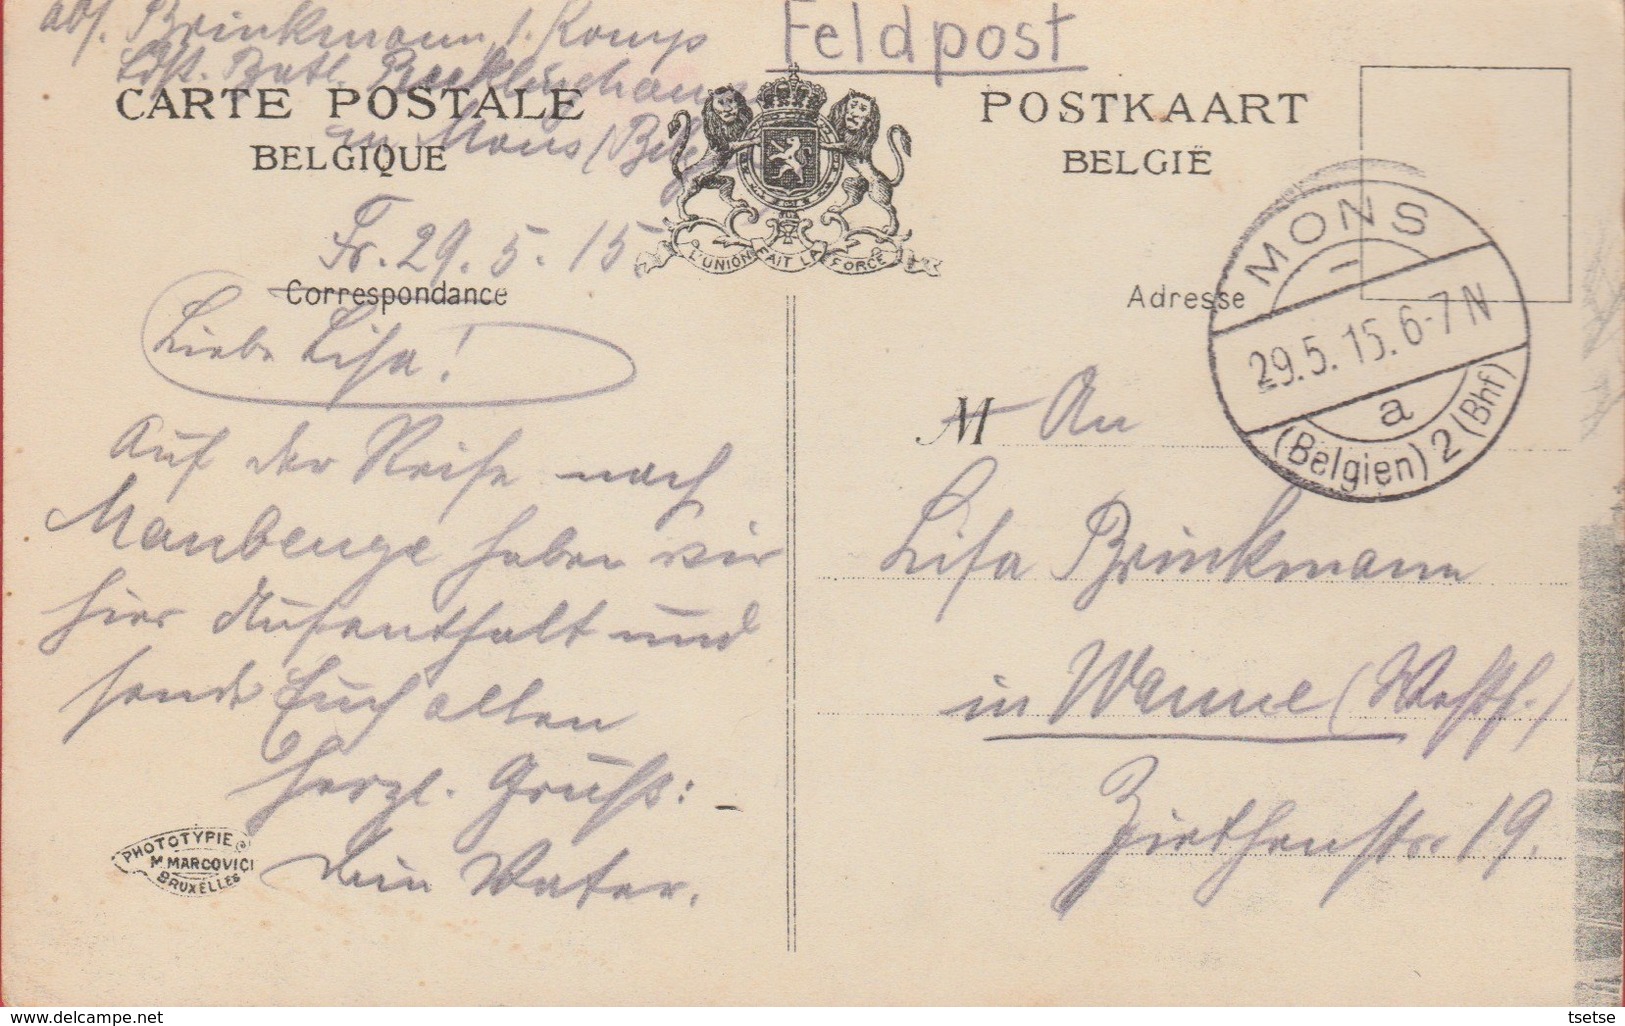 Abs. Brinkmann, 1. Komp
Ldst. Batl. Recklinghausen
zu Mons / Belg.
Feldpost
CARTE POSTALE
BELGIQUE
POSTKAART
BELGIË
L'UNION FAIT LA FORCE
Fr. 29. 5. 15.
Correspondance
Liebe Lisa!
Auf der Reise nach
Maubeuge haben wir
hier Aufenthalt und
sende Euch allen
herzl. Grüße:
Dein Vater.
PHOTOTYPIE
M. MARCOVICI
BRUXELLES
MONS
29.5.15. 6-7 N
a
(Belgien) 2 (Bhf)
Adresse
M An
Lisa Brinkmann
in Wanne (Westf.)
Ziethenstr. 19.
www.delcampe.net
tsetse